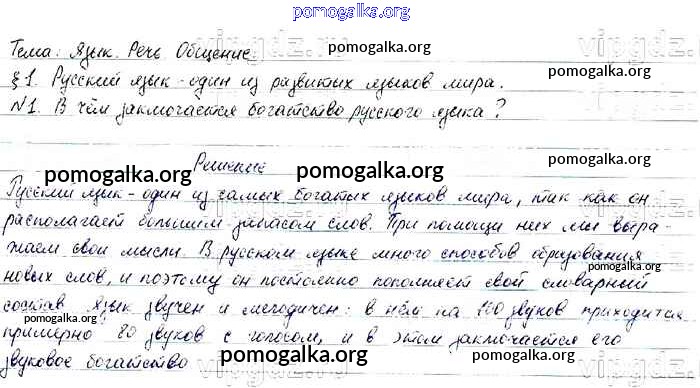 pomogalka.org
Тема: Язык. Речь. Общение.
pomogalka.org
§1. Русский язык - один из развитых языков мира.
pomogalka.org
№1. В чём заключается богатство русского языка?
pomogalka.org
Решение
pomogalka.org
pomogalka.org
Русский язык - один из самых богатых языков мира, так как он
располагает большим запасом слов. При помощи них мы выра-
pomogalka.org
жаем свои мысли. В русском языке много способов образования
pomogalka.org
новых слов, и поэтому он постоянно пополняет свой словарный
состав Язык звучен и мелодичен: в нём на 100 звуков приходится
pomogalka.org
примерно 80 звуков с голосом, и в этом заключается его
звуковое богатство
pomogalka.org
pomogalka.org